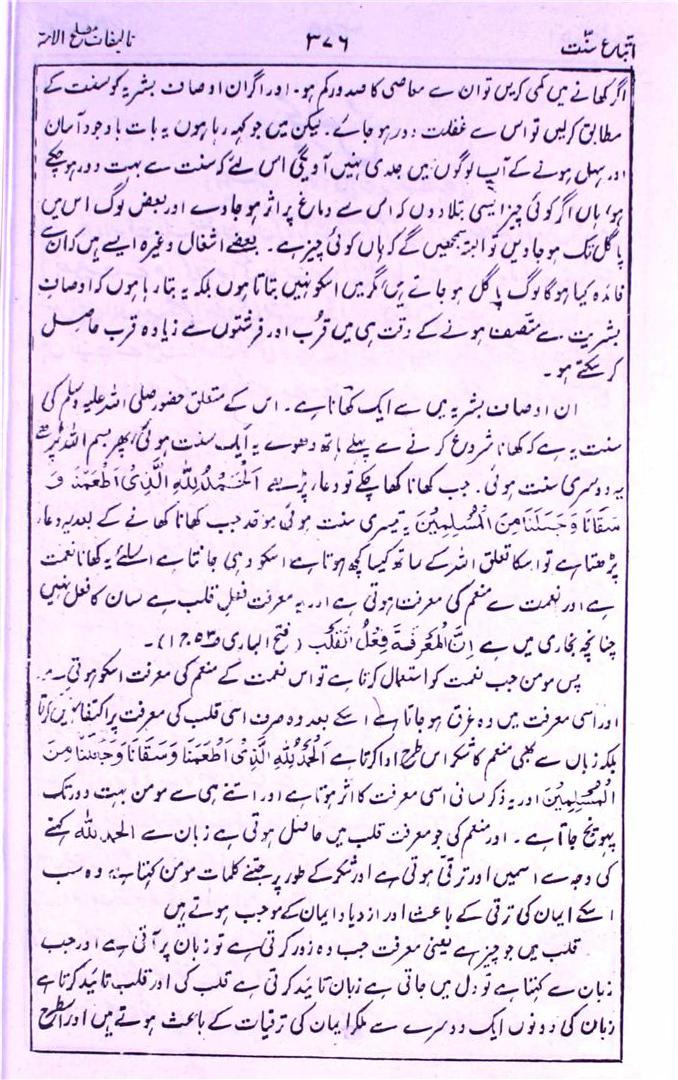 اتباع سنّت ۳۷۶ تالیفات مصلح الامۃ
اگر کھانے میں کمی کریں تو ان سے معاصی کا صدور کم ہو۔ اور اگر ان اوصاف بشریہ کو سنت کے
مطابق کرلیں تو اس سے غفلت دور ہو جائے۔ لیکن میں جو کہہ رہا ہوں یہ بات باوجود آسان
اور سہل ہونے کے آپ لوگوں میں جلدی نہیں آویگی اس لئے کہ سنت سے بہت دور ہو چکے
ہو، ہاں اگر کوئی چیز ایسی بتلا دوں کہ اس سے دماغ پر اثر ہو جاوے اور بعض لوگ اس میں
پاگل تک ہو جاویں تو البتہ سمجھیں گے کہ ہاں کوئی چیز ہے۔ بعضے اشغال وغیرہ ایسے ہیں کہ ان سے
فائدہ کیا ہوگا لوگ پاگل ہو جاتے ہیں مگر میں اسکو نہیں بتاتا ہوں بلکہ یہ بتا رہا ہوں کہ اوصاف
بشریت سے متصف ہونے کے وقت ہی میں قرب اور فرشتوں سے زیادہ قرب حاصل
کر سکتے ہو۔
ان اوصاف بشریہ میں سے ایک کھانا ہے۔ اس کے متعلق حضور صلی اللہ علیہ وسلم کی
سنت یہ ہے کہ کھانا شروع کرنے سے پہلے ہاتھ دھوے یہ ایک سنت ہوئی، پھر بسم اللہ پڑھے
یہ دوسری سنت ہوئی۔ جب کھانا کھا چکے تو دعاء پڑھے اَلْحَمْدُ لِلّٰهِ الَّذِیْ اَطْعَمَنَا وَ
سَقَانَا وَجَعَلَنَا مِنَ الْمُسْلِمِیْنَ یہ تیسری سنت ہوئی جب کھانا کھانے کے بعد یہ دعاء
پڑھتا ہے تو اسکا تعلق اللہ کے ساتھ کیسا کچھ ہوتا ہے اسکو وہی جانتا ہے اسلئے یہ کھانا نعمت
ہے اور نعمت سے منعم کی معرفت ہوتی ہے اور یہ معرفت فعلِ قلب ہے لسان کا فعل نہیں
چنانچہ بخاری میں ہے اِنَّ الْمَعْرِفَةَ فِعْلُ الْقَلْبِ (فتح الباری ۵۳ ج۱)۔
پس مومن جب نعمت کو استعمال کرتا ہے تو اس نعمت کے منعم کی معرفت اسکو ہوتی ہے
اور اسی معرفت میں وہ غرق ہو جاتا ہے اسکے بعد وہ صرف اسی قلب کی معرفت پر اکتفا نہیں کرتا
بلکہ زباں سے بھی منعم کا شکر اس طرح ادا کرتا ہے اَلْحَمْدُ لِلّٰهِ الَّذِیْ اَطْعَمَنَا وَسَقَانَا وَجَعَلَنَا مِنَ
الْمُسْلِمِیْنَ اور یہ ذکر لسانی اسی معرفت کا اثر ہوتا ہے اور اتنے ہی سے مومن بہت دور تک
پہونچ جاتا ہے۔ اور منعم کی جو معرفت قلب میں حاصل ہوتی ہے زبان سے الحمد للہ کہنے
کی وجہ سے اسمیں اور ترقی ہوتی ہے اور شکر کے طور پر جتنے کلمات مومن کہتا ہے وہ سب
اسکے ایمان کی ترقی کے باعث اور ازدیاد ایمان کے موجب ہوتے ہیں
قلب میں جو چیز ہے یعنی معرفت جب وہ زور کرتی ہے تو زبان پر آتی ہے اور جب
زبان سے کہتا ہے تو دل میں جاتی ہے زبان تائید کرتی ہے قلب کی اور قلب تائید کرتا ہے
زبان کی دونوں ایک دوسرے سے ملکر ایمان کی ترقیات کے باعث ہوتے ہیں اور اسطرح